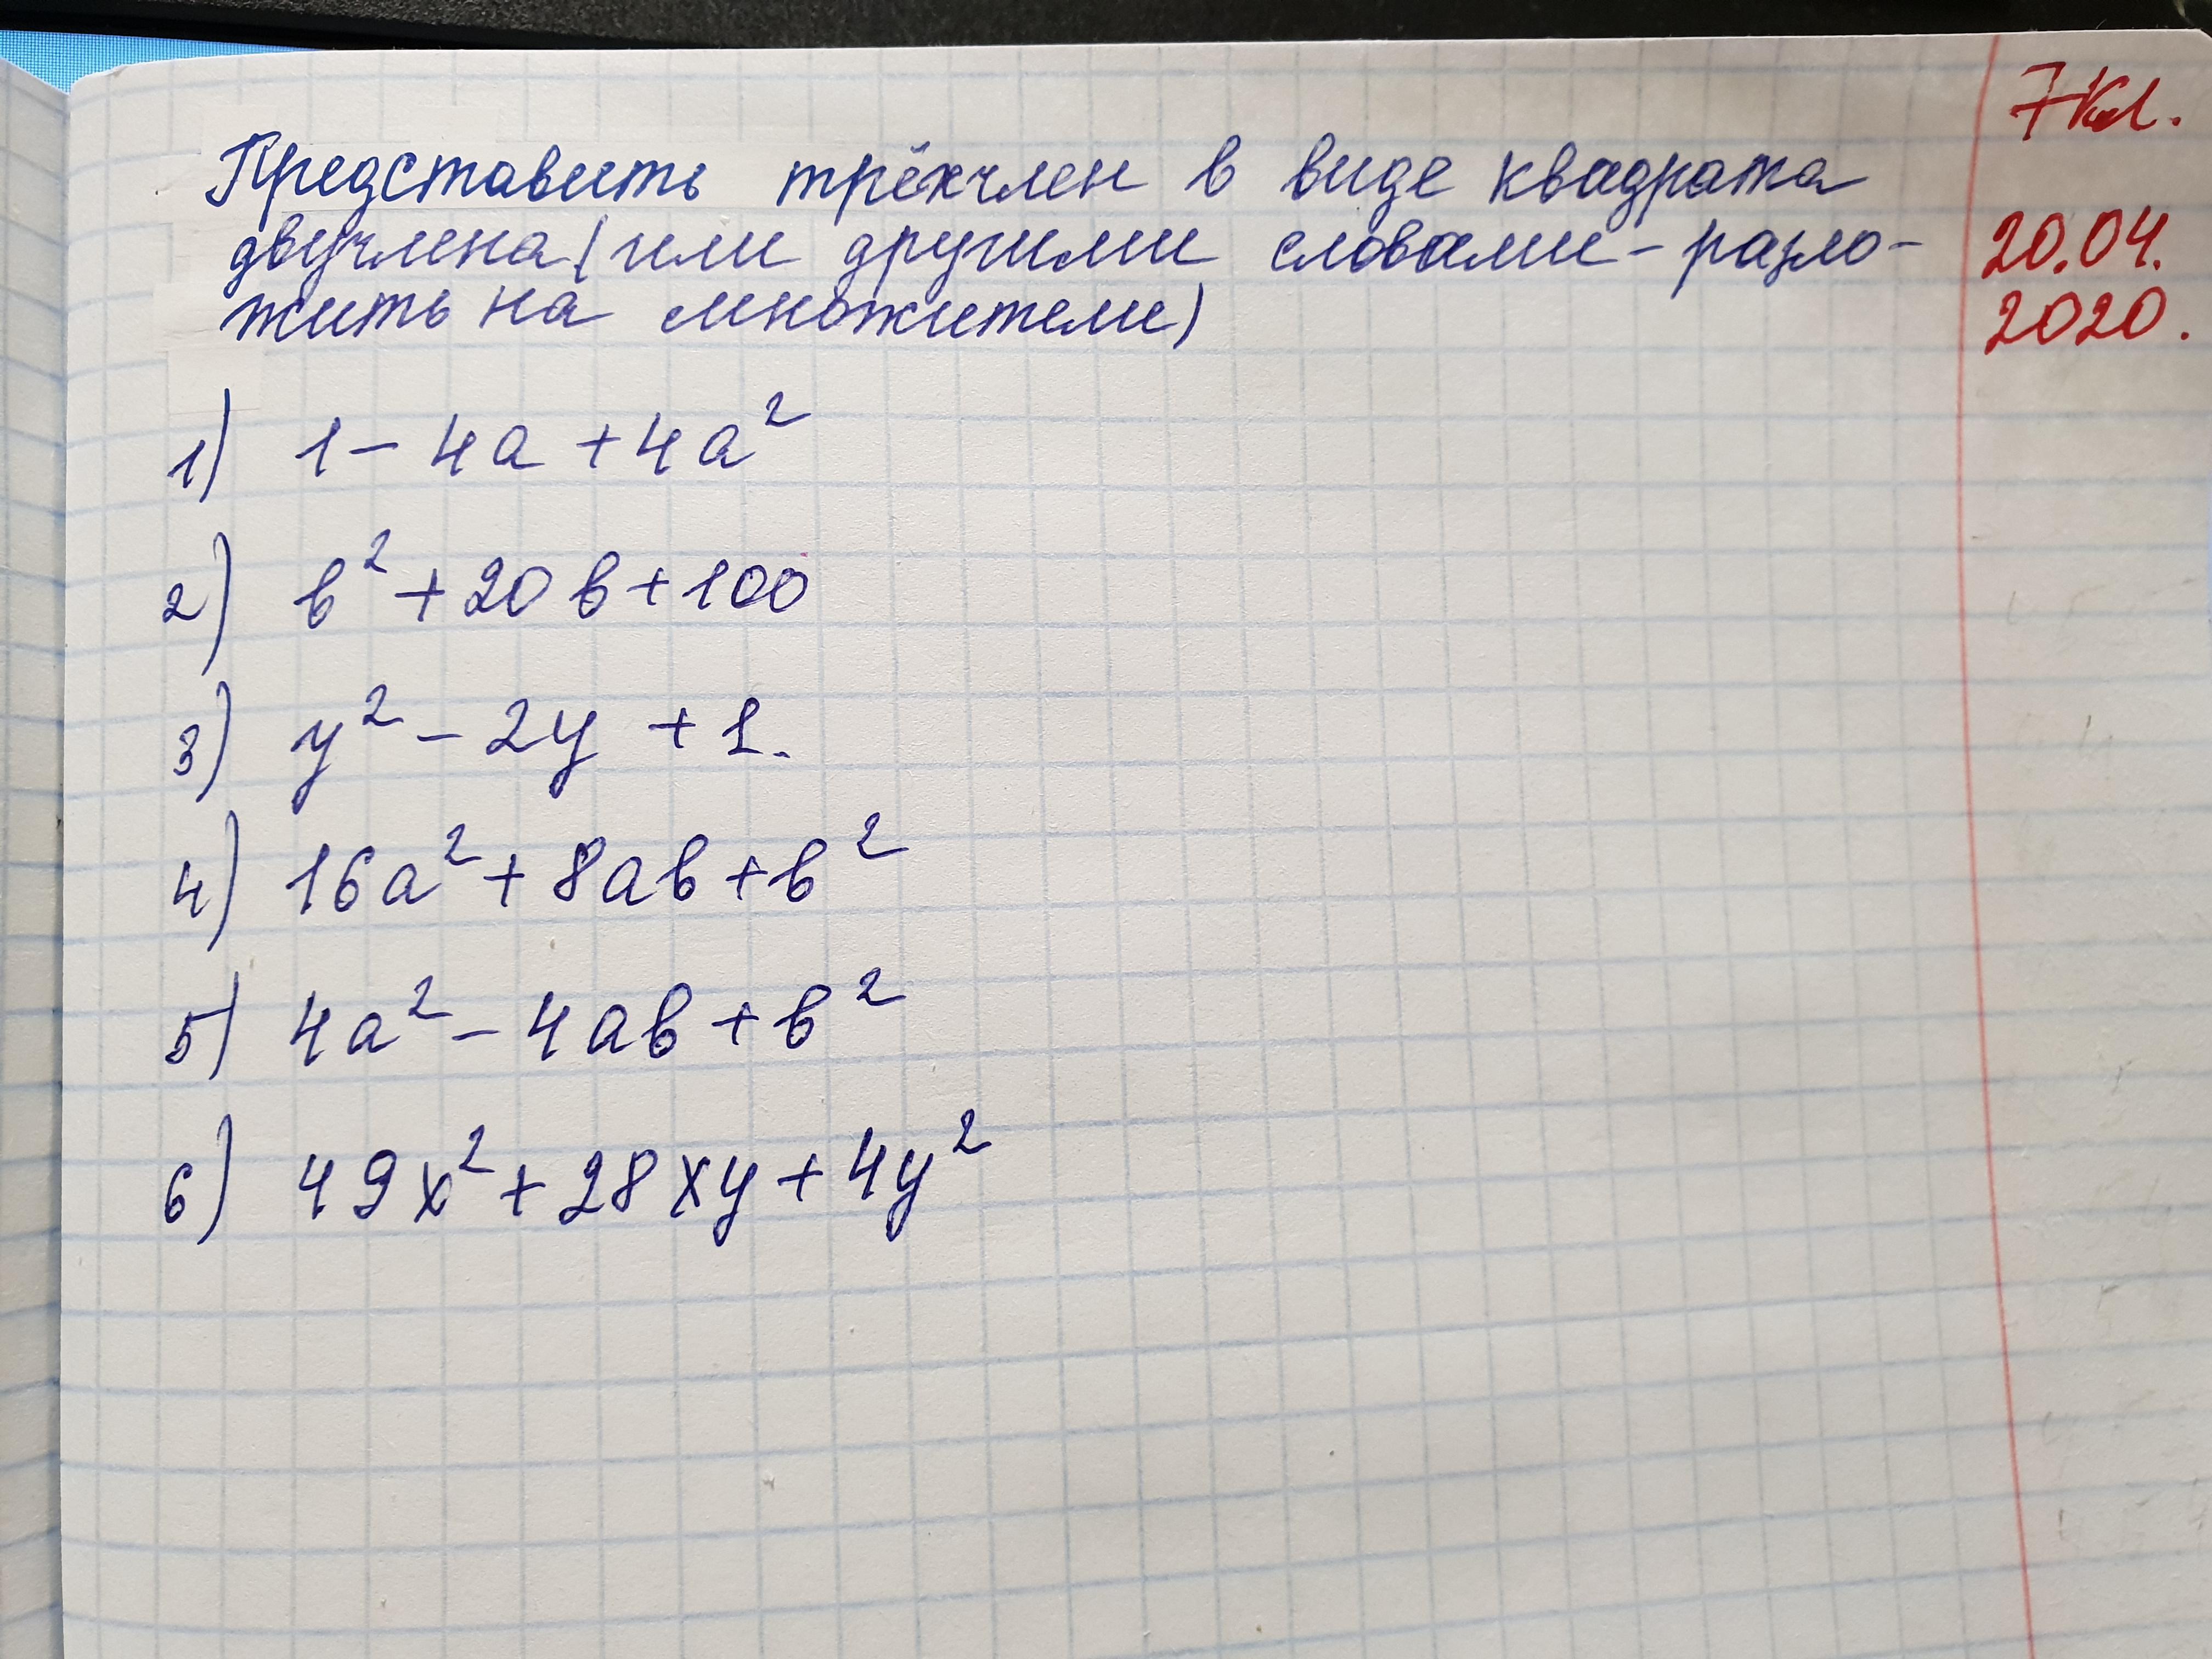 7 кл.
Представить трёхчлен в виде квадрата
двучлена (или другими словами - разло-
жить на множители)
20.04.
2020.
1) 1 - 4a + 4a²
2) b² + 20b + 100
3) y² - 2y + 1.
4) 16a² + 8ab + b²
5) 4a² - 4ab + b²
6) 49x² + 28xy + 4y²